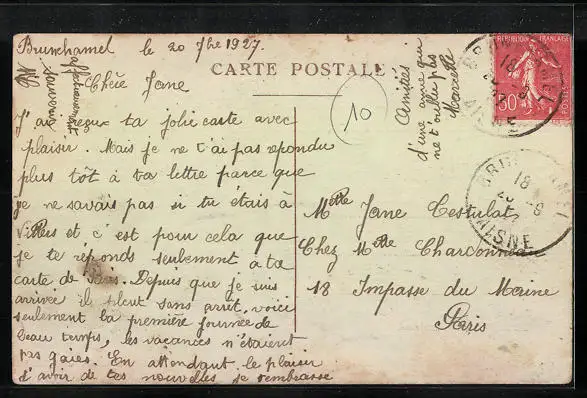 Brunehamel le 20 7bre 1927.
affectueusement
souvenir
Chère Jane
CARTE POSTALE
J'ai reçu ta jolie carte avec
plaisir. Mais je ne t'ai pas repondu
plus tôt à ta lettre parce que
je ne savais pas si tu étais à
et c'est pour cela que
je te réponds seulement à ta
carte de Paris. Depuis que je suis
arrivée il pleut sans arrêt, voici
seulement la première journée de
beau temps, les vacances n'étaient
pas gaies. En attendant le plaisir
d'avoir de tes nouvelles je t'embrasse
10
Amitiés
d'une amie qui
ne t'oublie pas
REPUBLIQUE FRANÇAISE
50
AISNE
18
AISNE
Melle Jane
Chez Melle Chardonneau
18 Impasse du Maine
Paris